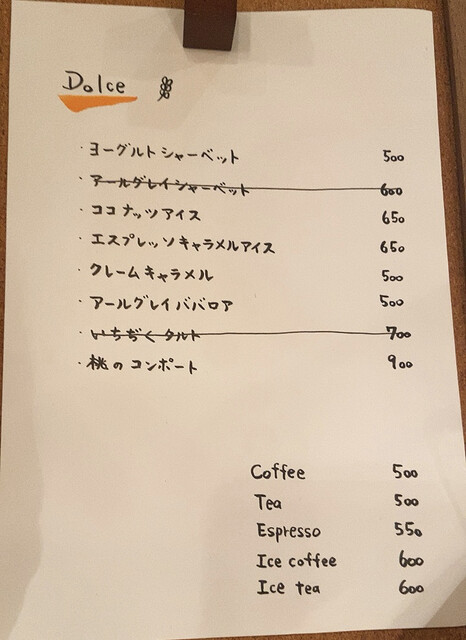 Dolce
・ヨーグルトシャーベット 500
・アールグレイシャーベット 600
・ココナッツアイス 650
・エスプレッソキャラメルアイス 650
・クレームキャラメル 500
・アールグレイババロア 500
・いちぢくタルト 700
・桃のコンポート 900
Coffee 500
Tea 500
Espresso 550
Ice coffee 600
Ice tea 600